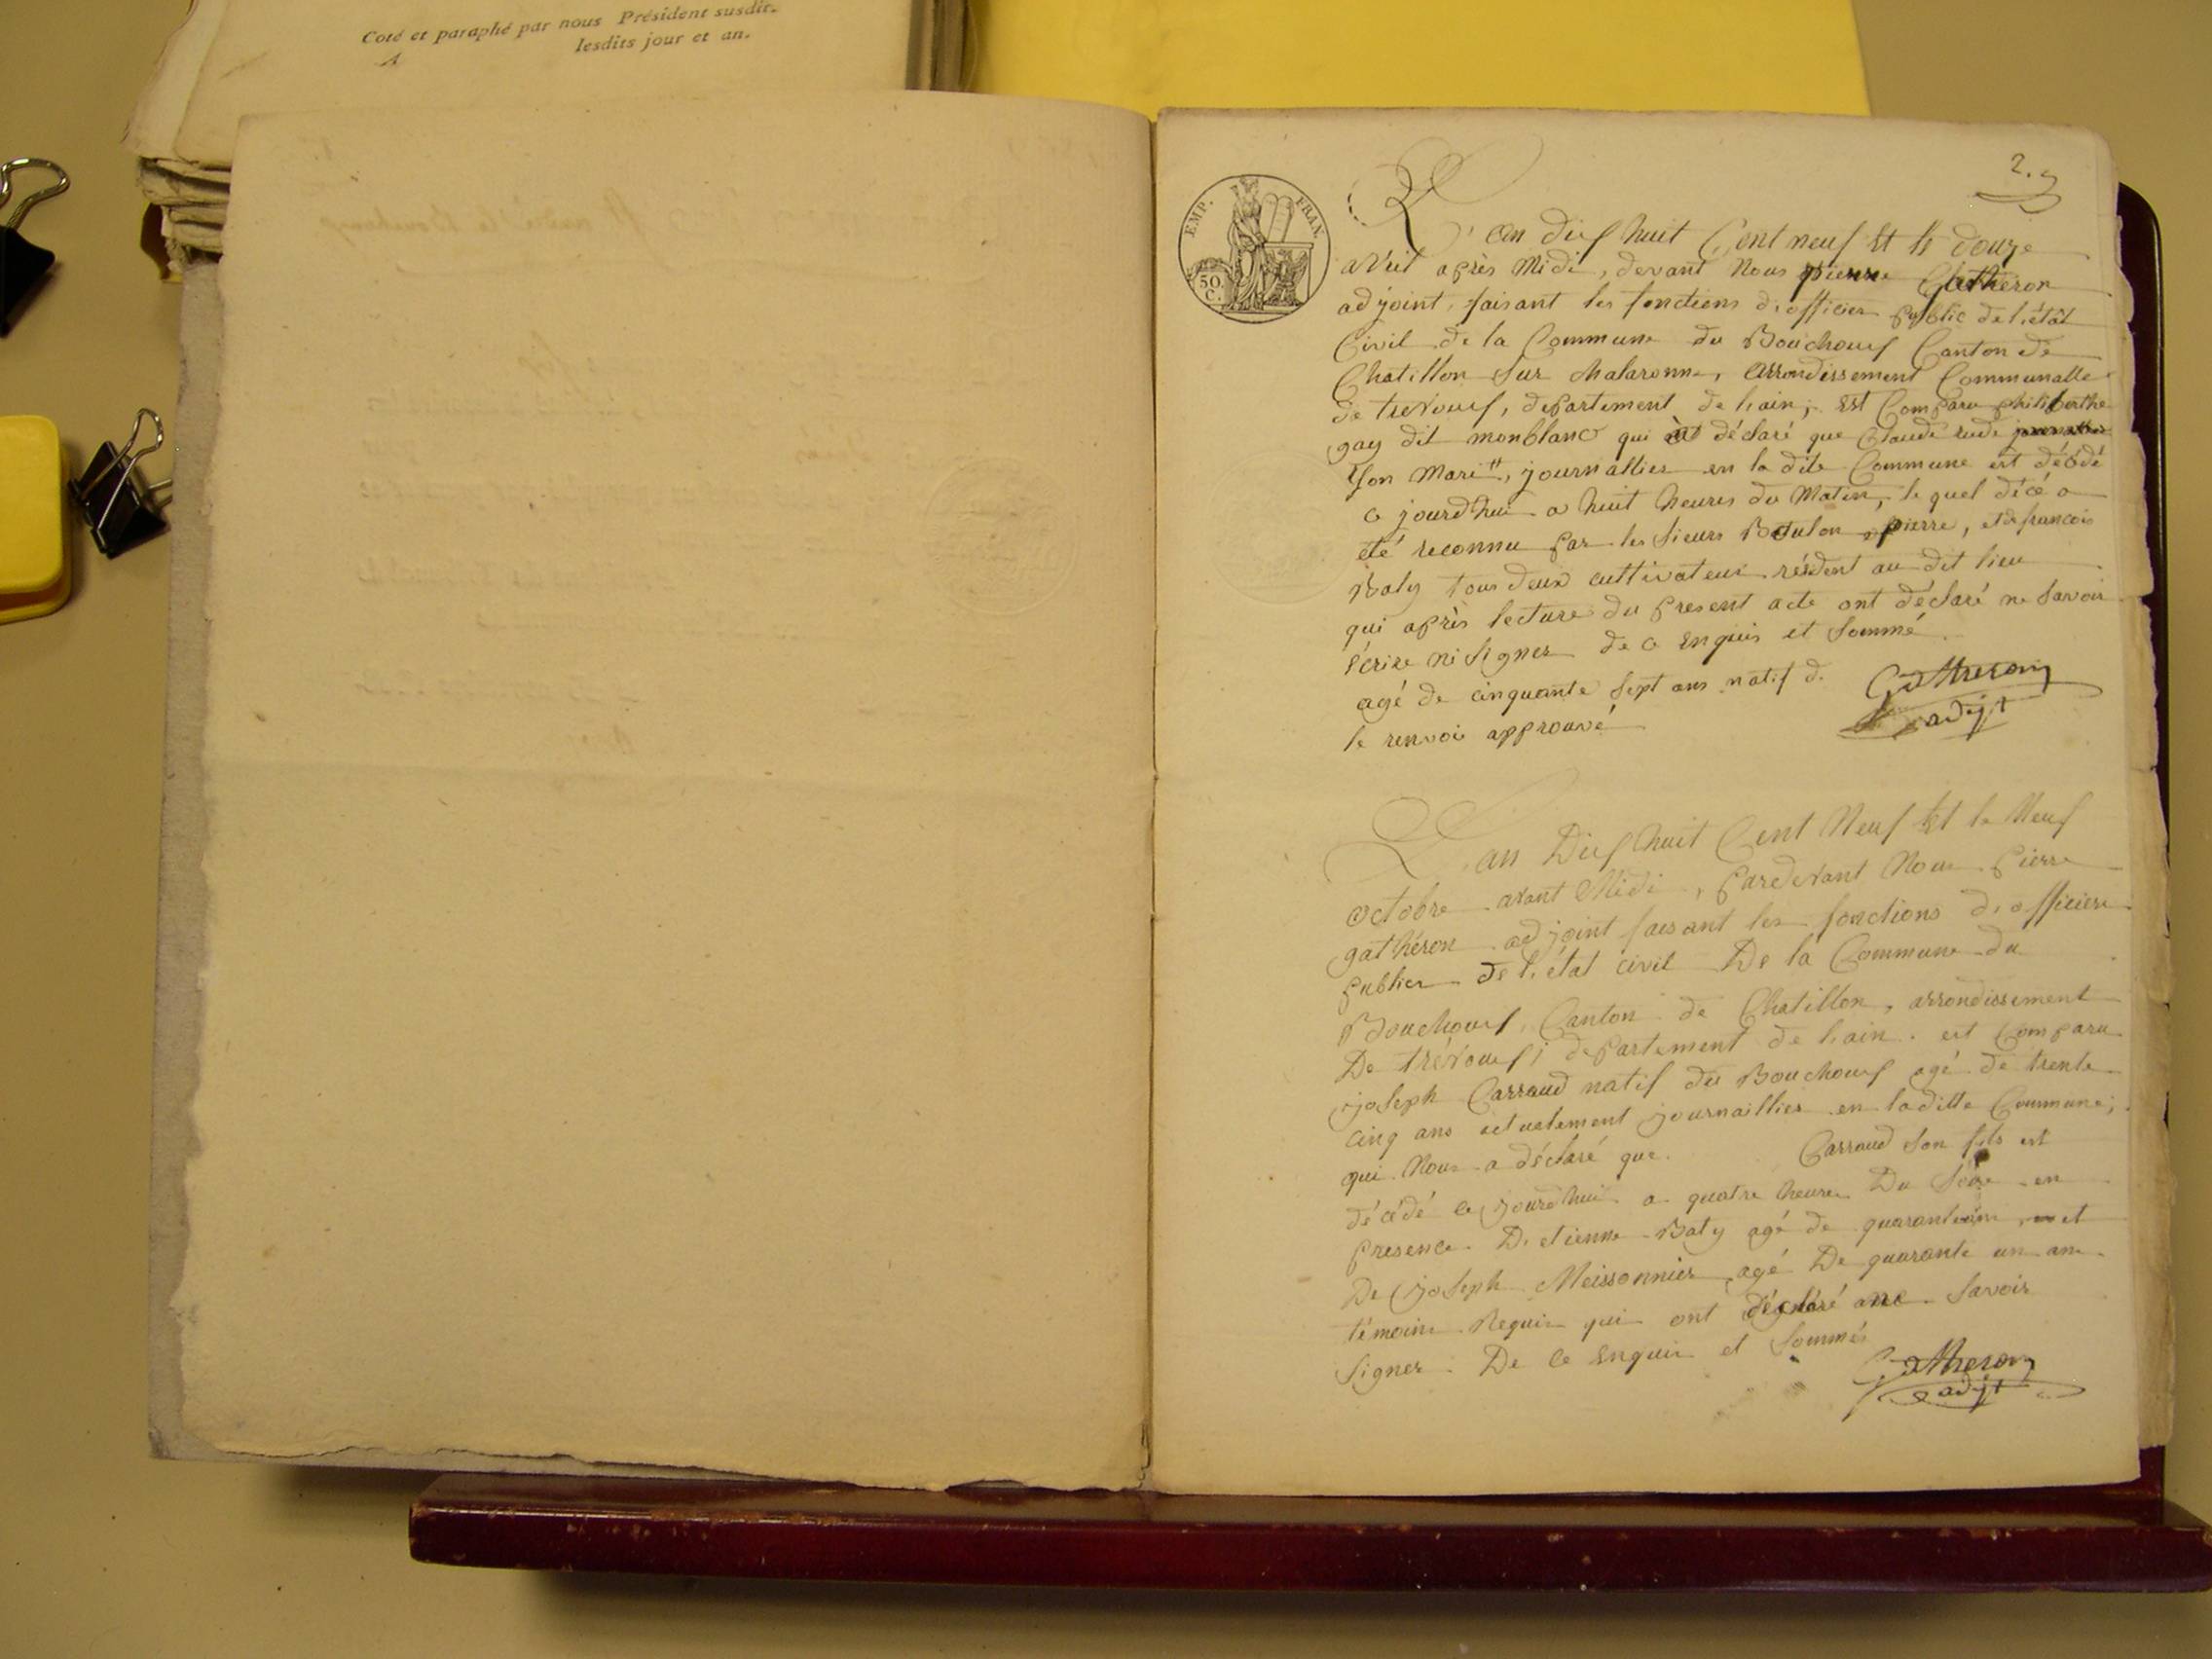 Coté et paraphé par nous Président susdit.
lesdits jour et an.
2.
EMP. FRAN.
50. C.
L'an dix huit Cent neuf Et le douze
avril après Midi, devant Nous pierre Gatheron
adjoint, faisant les fonctions d'officier public de l'état
Civil de la Commune du Bouchoux Canton de
Chatillon Sur Chalaronne, arrondissement Communalle
de trevoux, departement de l'ain; Est Comparu philiberthe
gay dit monblanc qui a déclaré que Claude
Son Mari ⁺⁺, journallier en la dite Commune est décédé
ce jourd'hui a huit heures du Matin, le quel décé a
été reconnu par les sieurs Botulon pierre, et de francois
Baty tous deux cultivateur résident au dit lieu
qui après lecture du present acte ont déclaré ne savoir
écrire ni signer de ce Enquis et Sommé.
agé de cinquante sept ans natif d.
le renvoi approuvé
Gatheron
adjt
L'an Dix huit Cent Neuf Et le Neuf
octobre avant Midi, Pardevant Nous Pierre
gathéron adjoint faisant les fonctions d'officier
publier de l'état civil De la Commune du
Bouchoux, Canton de Chatillon, arrondissement
De trévoux, departement de l'ain. est Comparu
joseph Carraud natif du Bouchoux agé de trente
cinq ans actuelement journaillier en la ditte Commune;
qui Nous a déclaré que Carraud son fils est
décédé ce jourd'hui a quatre heures Du Soire en
presence D'etienne Baty agé de quarante, et
De joseph Meissonnier agé De quarante un ans
témoins Requis qui ont déclaré ne Savoir
Signer. De ce Enquis et Sommés
Gatheron
adjt